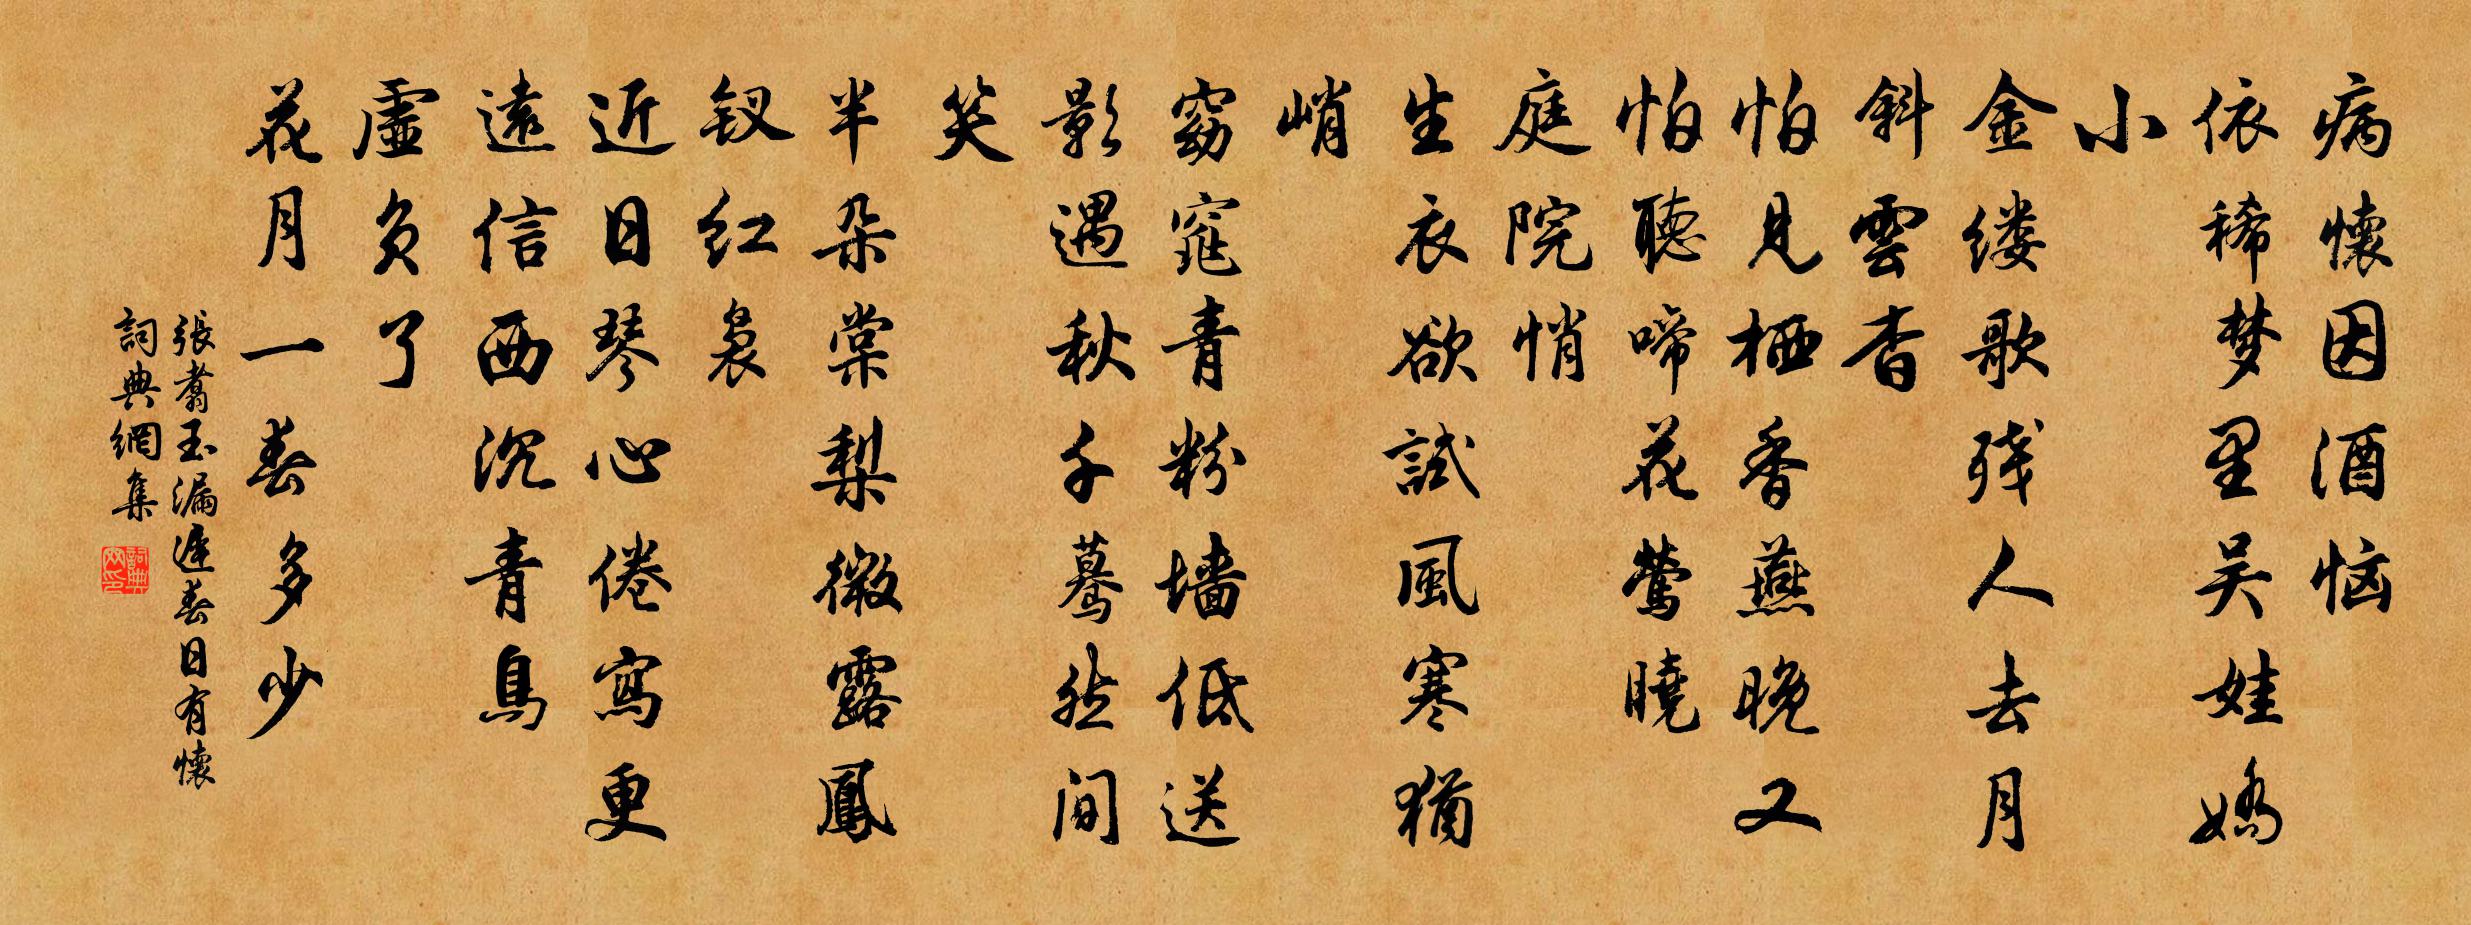 病懷因酒恼
依稀梦里吴娃嬌
小
金缕歌残人去月
斜雲杳
怕見栖香燕晚又
怕聽啼花莺曉
庭院悄
生衣欲試風寒猶
峭
窈窕青粉墙低送
影遇秋千驀然间
笑
半朵棠梨微露鳳
钗红裊
近日琴心倦寫更
遠信西沉青鳥
虚負了
花月一春多少
張翥玉漏遲春日有懷
詞典網集
詞典网印